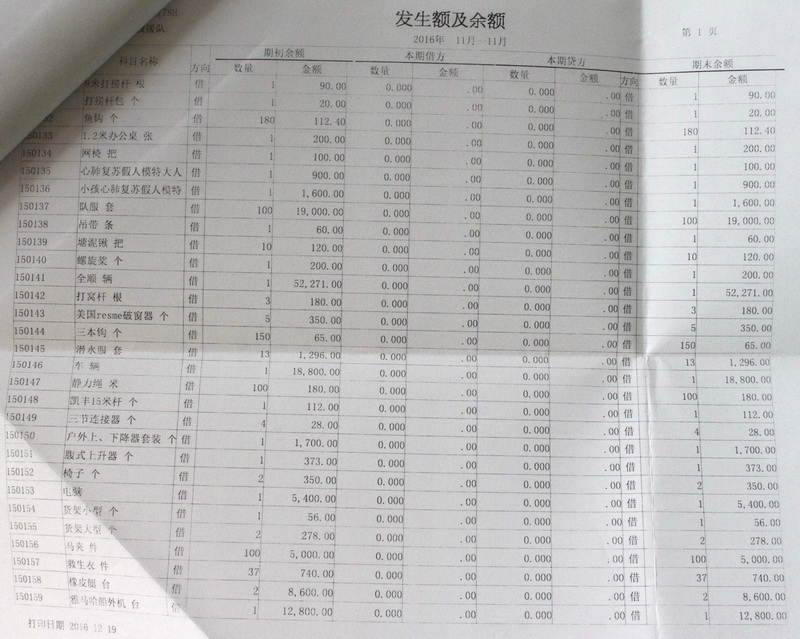 发生额及余额
援队
2016年 11月—11月
第 1 页
科目名称 方向 期初余额 本期借方 本期贷方 方向 期末余额
数量 金额 数量 金额 数量 金额 数量 金额
9米打捞杆 根 借 1 90.00 0.000 .00 0.000 .00 借 1 90.00
打捞杆包 个 借 1 20.00 0.000 .00 0.000 .00 借 1 20.00
鱼钩 个 借 180 112.40 0.000 .00 0.000 .00 借 180 112.40
150133 1.2米办公桌 张 借 1 200.00 0.000 .00 0.000 .00 借 1 200.00
150134 网椅 把 借 1 100.00 0.000 .00 0.000 .00 借 1 100.00
150135 心肺复苏假人模特大人 借 1 900.00 0.000 .00 0.000 .00 借 1 900.00
150136 小孩心肺复苏假人模特 借 1 1,600.00 0.000 .00 0.000 .00 借 1 1,600.00
150137 队服 套 借 100 19,000.00 0.000 .00 0.000 .00 借 100 19,000.00
150138 吊带 条 借 1 60.00 0.000 .00 0.000 .00 借 1 60.00
150139 塘泥锹 把 借 10 120.00 0.000 .00 0.000 .00 借 10 120.00
150140 螺旋桨 个 借 1 200.00 0.000 .00 0.000 .00 借 1 200.00
150141 全顺 辆 借 1 52,271.00 0.000 .00 0.000 .00 借 1 52,271.00
150142 打窝杆 根 借 3 180.00 0.000 .00 0.000 .00 借 3 180.00
150143 美国resme破窗器 个 借 5 350.00 0.000 .00 0.000 .00 借 5 350.00
150144 三本钩 个 借 150 65.00 0.000 .00 0.000 .00 借 150 65.00
150145 潜水服 套 借 13 1,296.00 0.000 .00 0.000 .00 借 13 1,296.00
150146 车 辆 借 1 18,800.00 0.000 .00 0.000 .00 借 1 18,800.00
150147 静力绳 米 借 100 180.00 0.000 .00 0.000 .00 借 100 180.00
150148 凯丰15米杆 个 借 1 112.00 0.000 .00 0.000 .00 借 1 112.00
150149 三节连接器 个 借 4 28.00 0.000 .00 0.000 .00 借 4 28.00
150150 户外上、下降器套装 个 借 1 1,700.00 0.000 .00 0.000 .00 借 1 1,700.00
150151 腹式上升器 个 借 1 373.00 0.000 .00 0.000 .00 借 1 373.00
150152 椅子 个 借 2 350.00 0.000 .00 0.000 .00 借 2 350.00
150153 电脑 借 1 5,400.00 0.000 .00 0.000 .00 借 1 5,400.00
150154 货架小型 个 借 1 56.00 0.000 .00 0.000 .00 借 1 56.00
150155 货架大型 个 借 2 278.00 0.000 .00 0.000 .00 借 2 278.00
150156 马夹 件 借 100 5,000.00 0.000 .00 0.000 .00 借 100 5,000.00
150157 救生衣 件 借 37 740.00 0.000 .00 0.000 .00 借 37 740.00
150158 橡皮艇 台 借 2 8,600.00 0.000 .00 0.000 .00 借 2 8,600.00
150159 雅马哈船外机 台 借 1 12,800.00 0.000 .00 0.000 .00 借 1 12,800.00
打印日期 2016 12 19